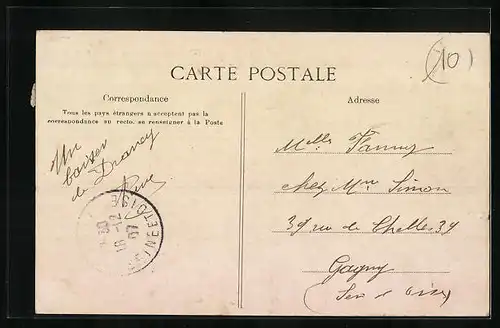 (10)
CARTE POSTALE
Correspondance
Tous les pays étrangers n'acceptent pas la
correspondance au recto, se renseigner à la Poste
Adresse
Un
baiser
de Drancy
Melle Fanny
chez Mme Simon
39 rue de Chelles 39
Gagny
(Seine et Oise)
SEINE ET OISE